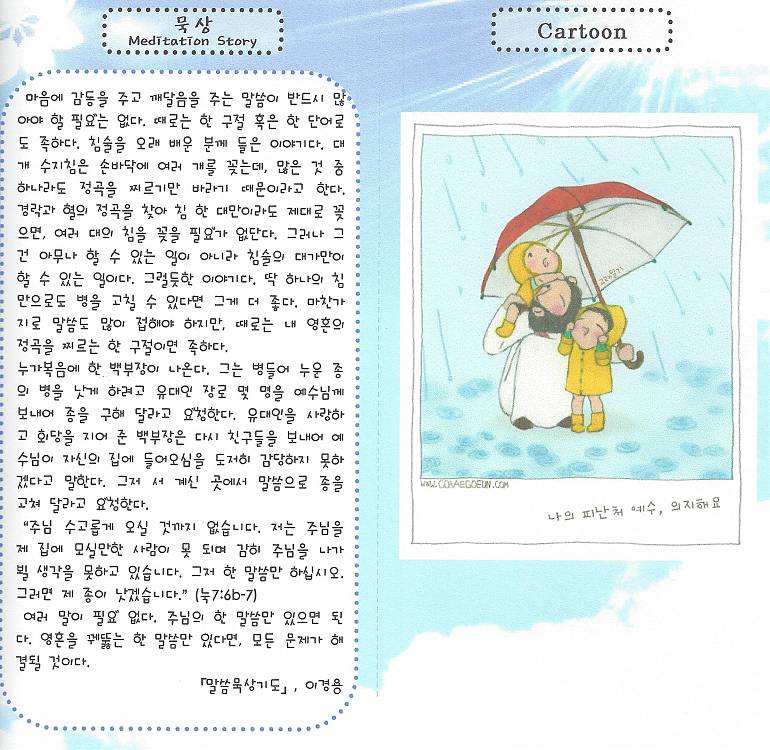 묵상
Meditation Story
마음에 감동을 주고 깨달음을 주는 말씀이 반드시 많
아야 할 필요는 없다. 때로는 한 구절 혹은 한 단어로
도 족하다. 침술을 오래 배운 분께 들은 이야기다. 대
개 수지침은 손바닥에 여러 개를 꽂는데, 많은 것 중
하나라도 정곡을 찌르기만 바라기 때문이라고 한다.
경락과 혈의 정곡을 찾아 침 한 대만이라도 제대로 꽂
으면, 여러 대의 침을 꽂을 필요가 없단다. 그러나 그
건 아무나 할 수 있는 일이 아니라 침술의 대가만이
할 수 있는 일이다. 그럴듯한 이야기다. 딱 하나의 침
만으로도 병을 고칠 수 있다면 그게 더 좋다. 마찬가
지로 말씀도 많이 접해야 하지만, 때로는 내 영혼의
정곡을 찌르는 한 구절이면 족하다.
누가복음에 한 백부장이 나온다. 그는 병들어 누운 종
의 병을 낫게 하려고 유대인 장로 몇 명을 예수님께
보내어 종을 구해 달라고 요청한다. 유대인을 사랑하
고 회당을 지어 준 백부장은 다시 친구들을 보내어 예
수님이 자신의 집에 들어오심을 도저히 감당하지 못하
겠다고 말한다. 그저 서 계신 곳에서 말씀으로 종을
고쳐 달라고 요청한다.
“주님 수고롭게 오실 것까지 없습니다. 저는 주님을
제 집에 모실만한 사람이 못 되며 감히 주님을 나가
뵐 생각을 못하고 있습니다. 그저 한 말씀만 하십시오.
그러면 제 종이 낫겠습니다.” (눅7:6b-7)
여러 말이 필요 없다. 주님의 한 말씀만 있으면 된
다. 영혼을 꿰뚫는 한 말씀만 있다면, 모든 문제가 해
결될 것이다.
『말씀묵상기도』, 이경용
Cartoon
고래일기
WWW.CORAEGOEUN.COM
나의 피난처 예수, 의지해요